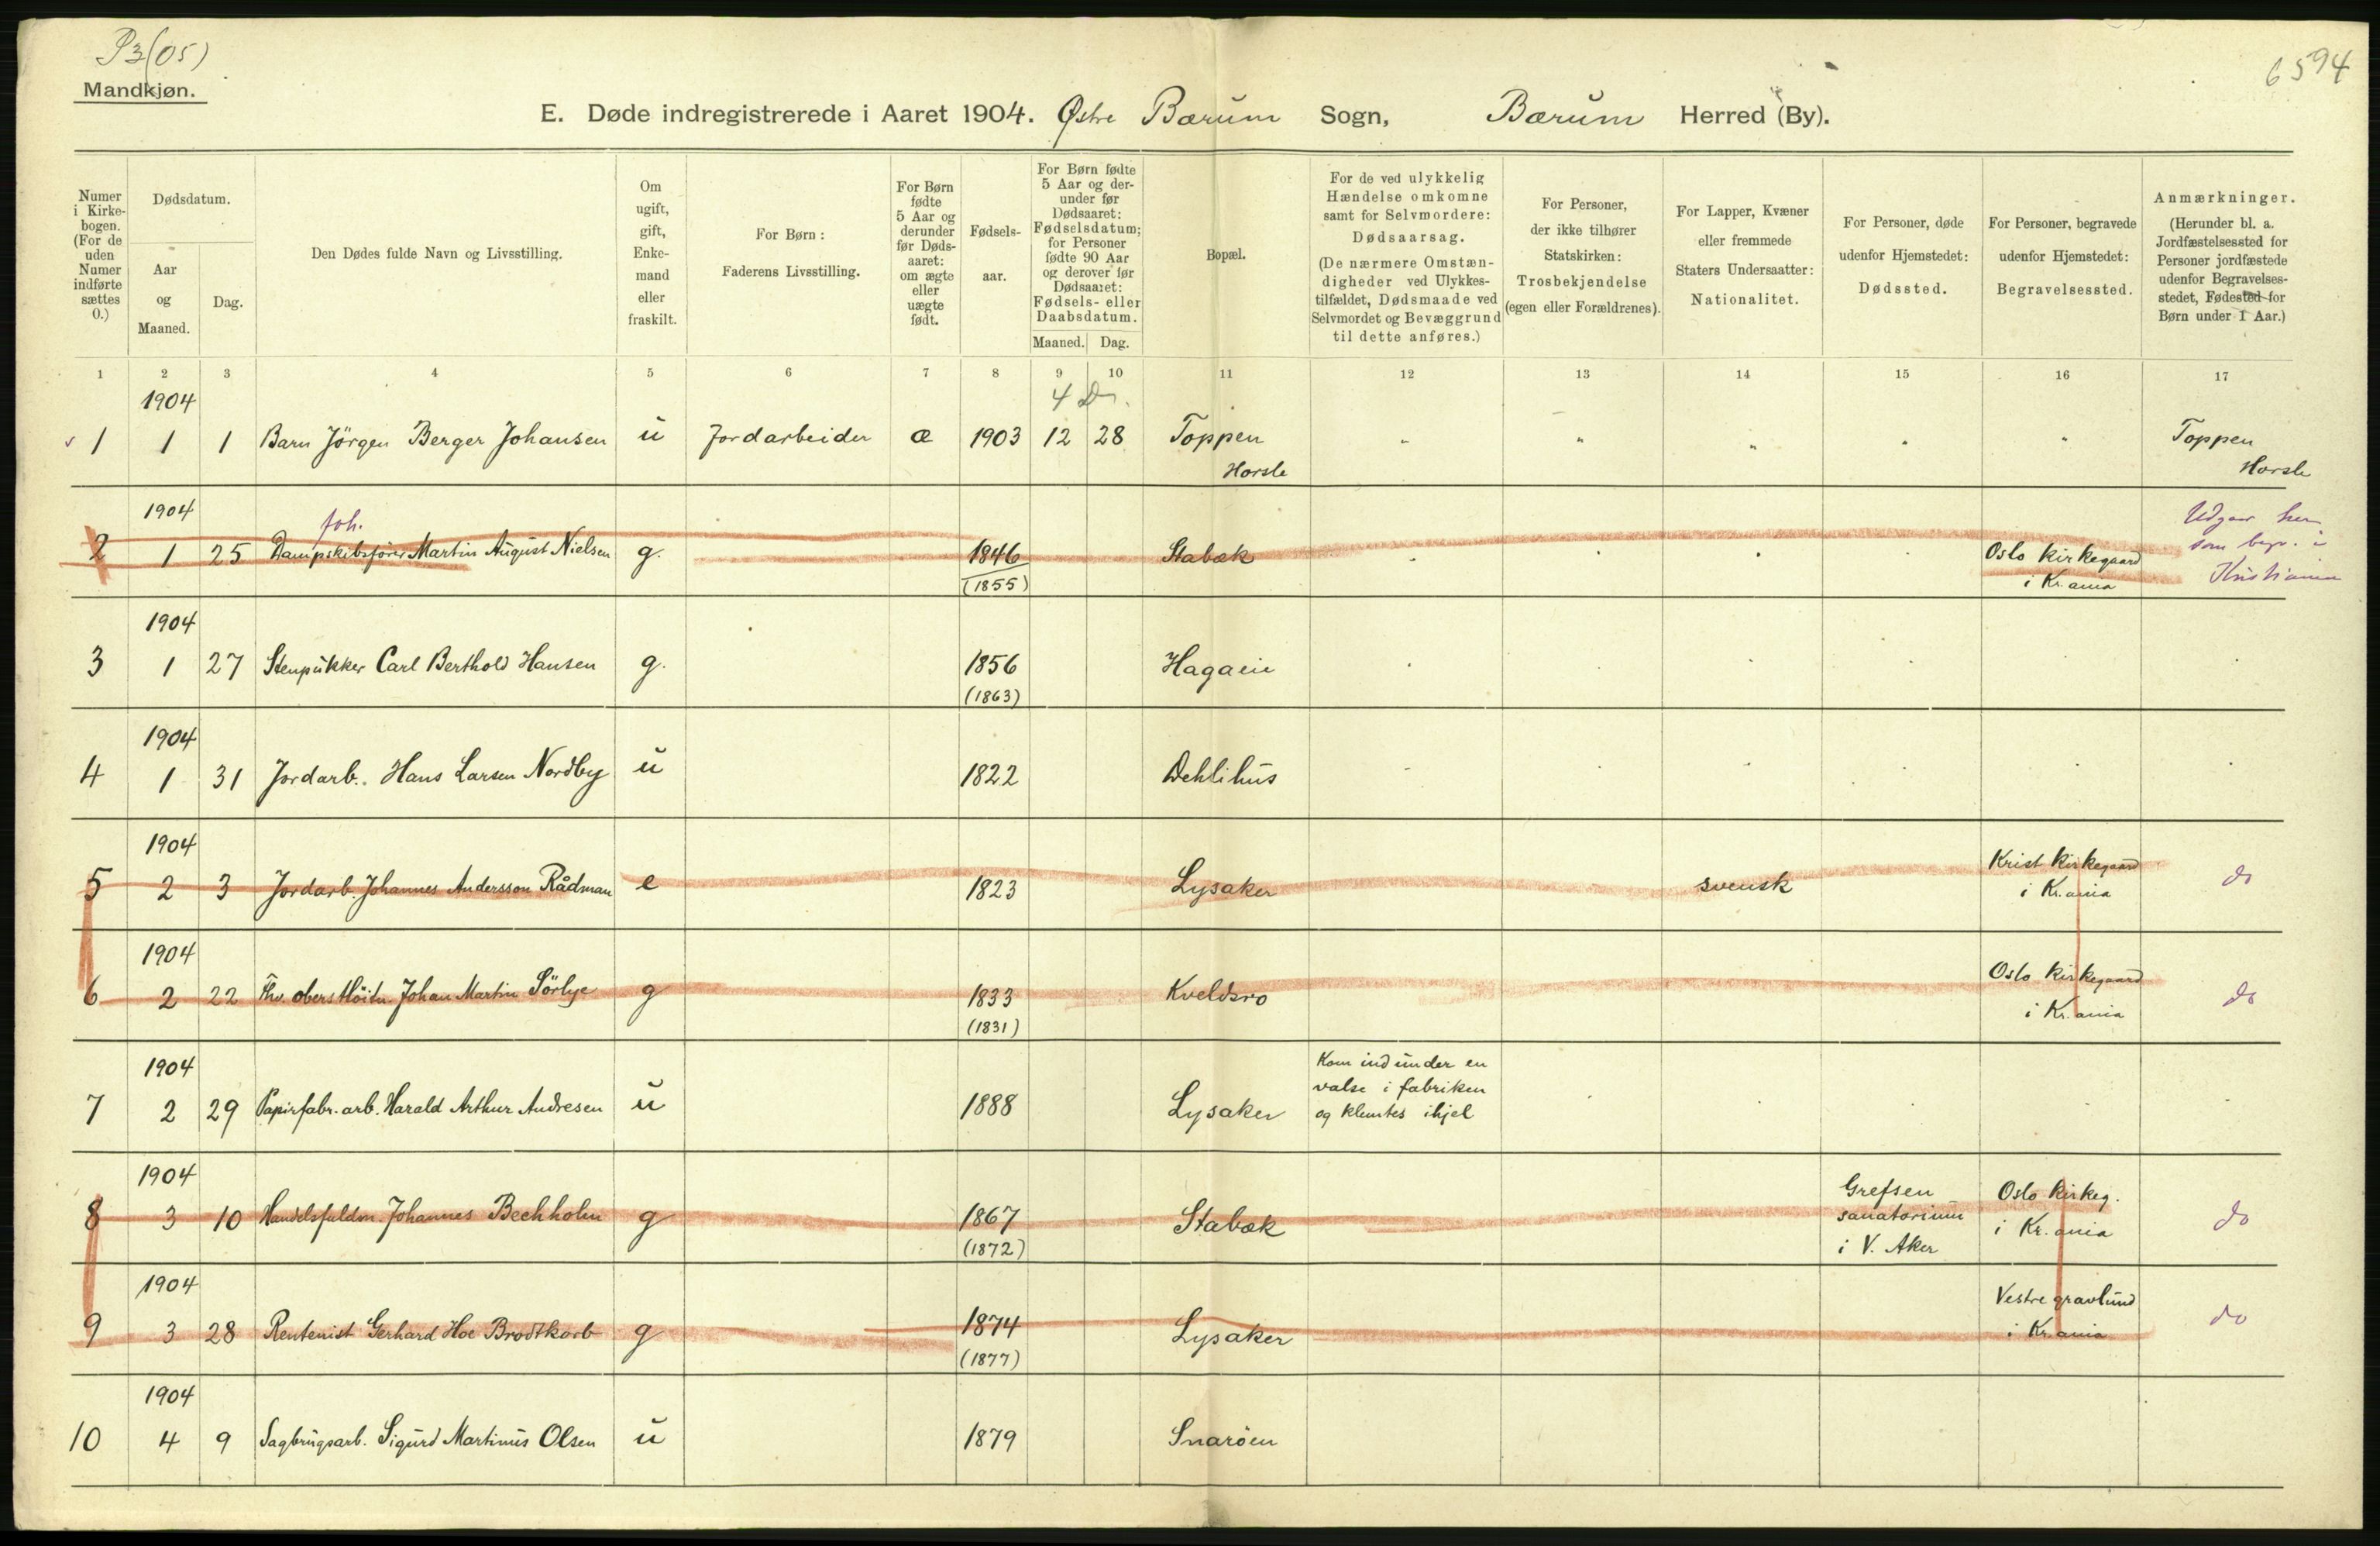 P3(05)
6594
Mandkjøn.
E. Døde indregistrerede i Aaret 1904. Østre Bærum Sogn, Bærum Herred (By).
Numer i Kirkebogen. (For de uden Numer indførte sættes 0.)
Dødsdatum.
Aar og Maaned.
Dag.
Den Dødes fulde Navn og Livsstilling.
Om ugift, gift, Enkemand eller fraskilt.
For Børn: Faderens Livsstilling.
For Børn fødte 5 Aar og derunder før Dødsaaret: om ægte eller uægte født.
Fødselsaar.
For Børn fødte 5 Aar og derunder før Dødsaaret: Fødselsdatum; for Personer fødte 90 Aar og derover før Dødsaaret: Fødsels- eller Daabsdatum.
Maaned. Dag.
Bopæl.
For de ved ulykkelig Hændelse omkomne samt for Selvmordere: Dødsaarsag. (De nærmere Omstændigheder ved Ulykkestilfældet, Dødsmaade ved Selvmordet og Bevæggrund til dette anføres.)
For Personer, der ikke tilhører Statskirken: Trosbekjendelse (egen eller Forældrenes).
For Lapper, Kvæner eller fremmede Staters Undersaatter: Nationalitet.
For Personer, døde udenfor Hjemstedet: Dødssted.
For Personer, begravede udenfor Hjemstedet: Begravelsessted.
Anmærkninger. (Herunder bl. a. Jordfæstelsessted for Personer jordfæstede udenfor Begravelsesstedet, Fødested for Børn under 1 Aar.)
1 2 3 4 5 6 7 8 9 10 11 12 13 14 15 16 17
1904 4 D.
1 1 1 Barn Jörgen Berger Johansen u Jordarbeider æ 1903 12 28 Toppen " " " " " Toppen
Horsle Horsle
1904 Joh. Udgaar her
2 1 25 Dampskibsfører Martin August Nielsen g. 1846 Stabæk Oslo kirkegaard som begr. i
(1855) i Kr.ania Kristiania
1904
3 1 27 Stenpukker Carl Berthold Hansen g. 1856 Hagaeie
(1863)
1904
4 1 31 Jordarb. Hans Larsen Nordby u 1822 Dehlihus
1904 Krist kirkegaard
5 2 3 Jordarb. Johannes Andersson Rådman e 1823 Lysaker svensk i Kr.ania do
1904 Oslo kirkegaard
6 2 22 Fhv. oberstlöitn. Johan Martin Sörlye g 1833 Kveldsro i Kr.ania do
(1831)
1904 Kom ind under en
valse i fabriken
7 2 29 Papirfabr.arb. Harald Arthur Andresen u 1888 Lysaker og klemtes ihjel
1904 Grefsen Oslo kirkeg.
8 3 10 Handelsfuldm. Johannes Bechholm g 1867 Stabæk sanatorium i Kr.ania do
(1872) i V. Aker
1904 Vestre gravlund
9 3 28 Rentenist Gerhard Hoe Brodtkorb g 1874 Lysaker i Kr.ania do
(1877)
1904
10 4 9 Sagbrugsarb. Sigurd Martinus Olsen u 1879 Snaröen